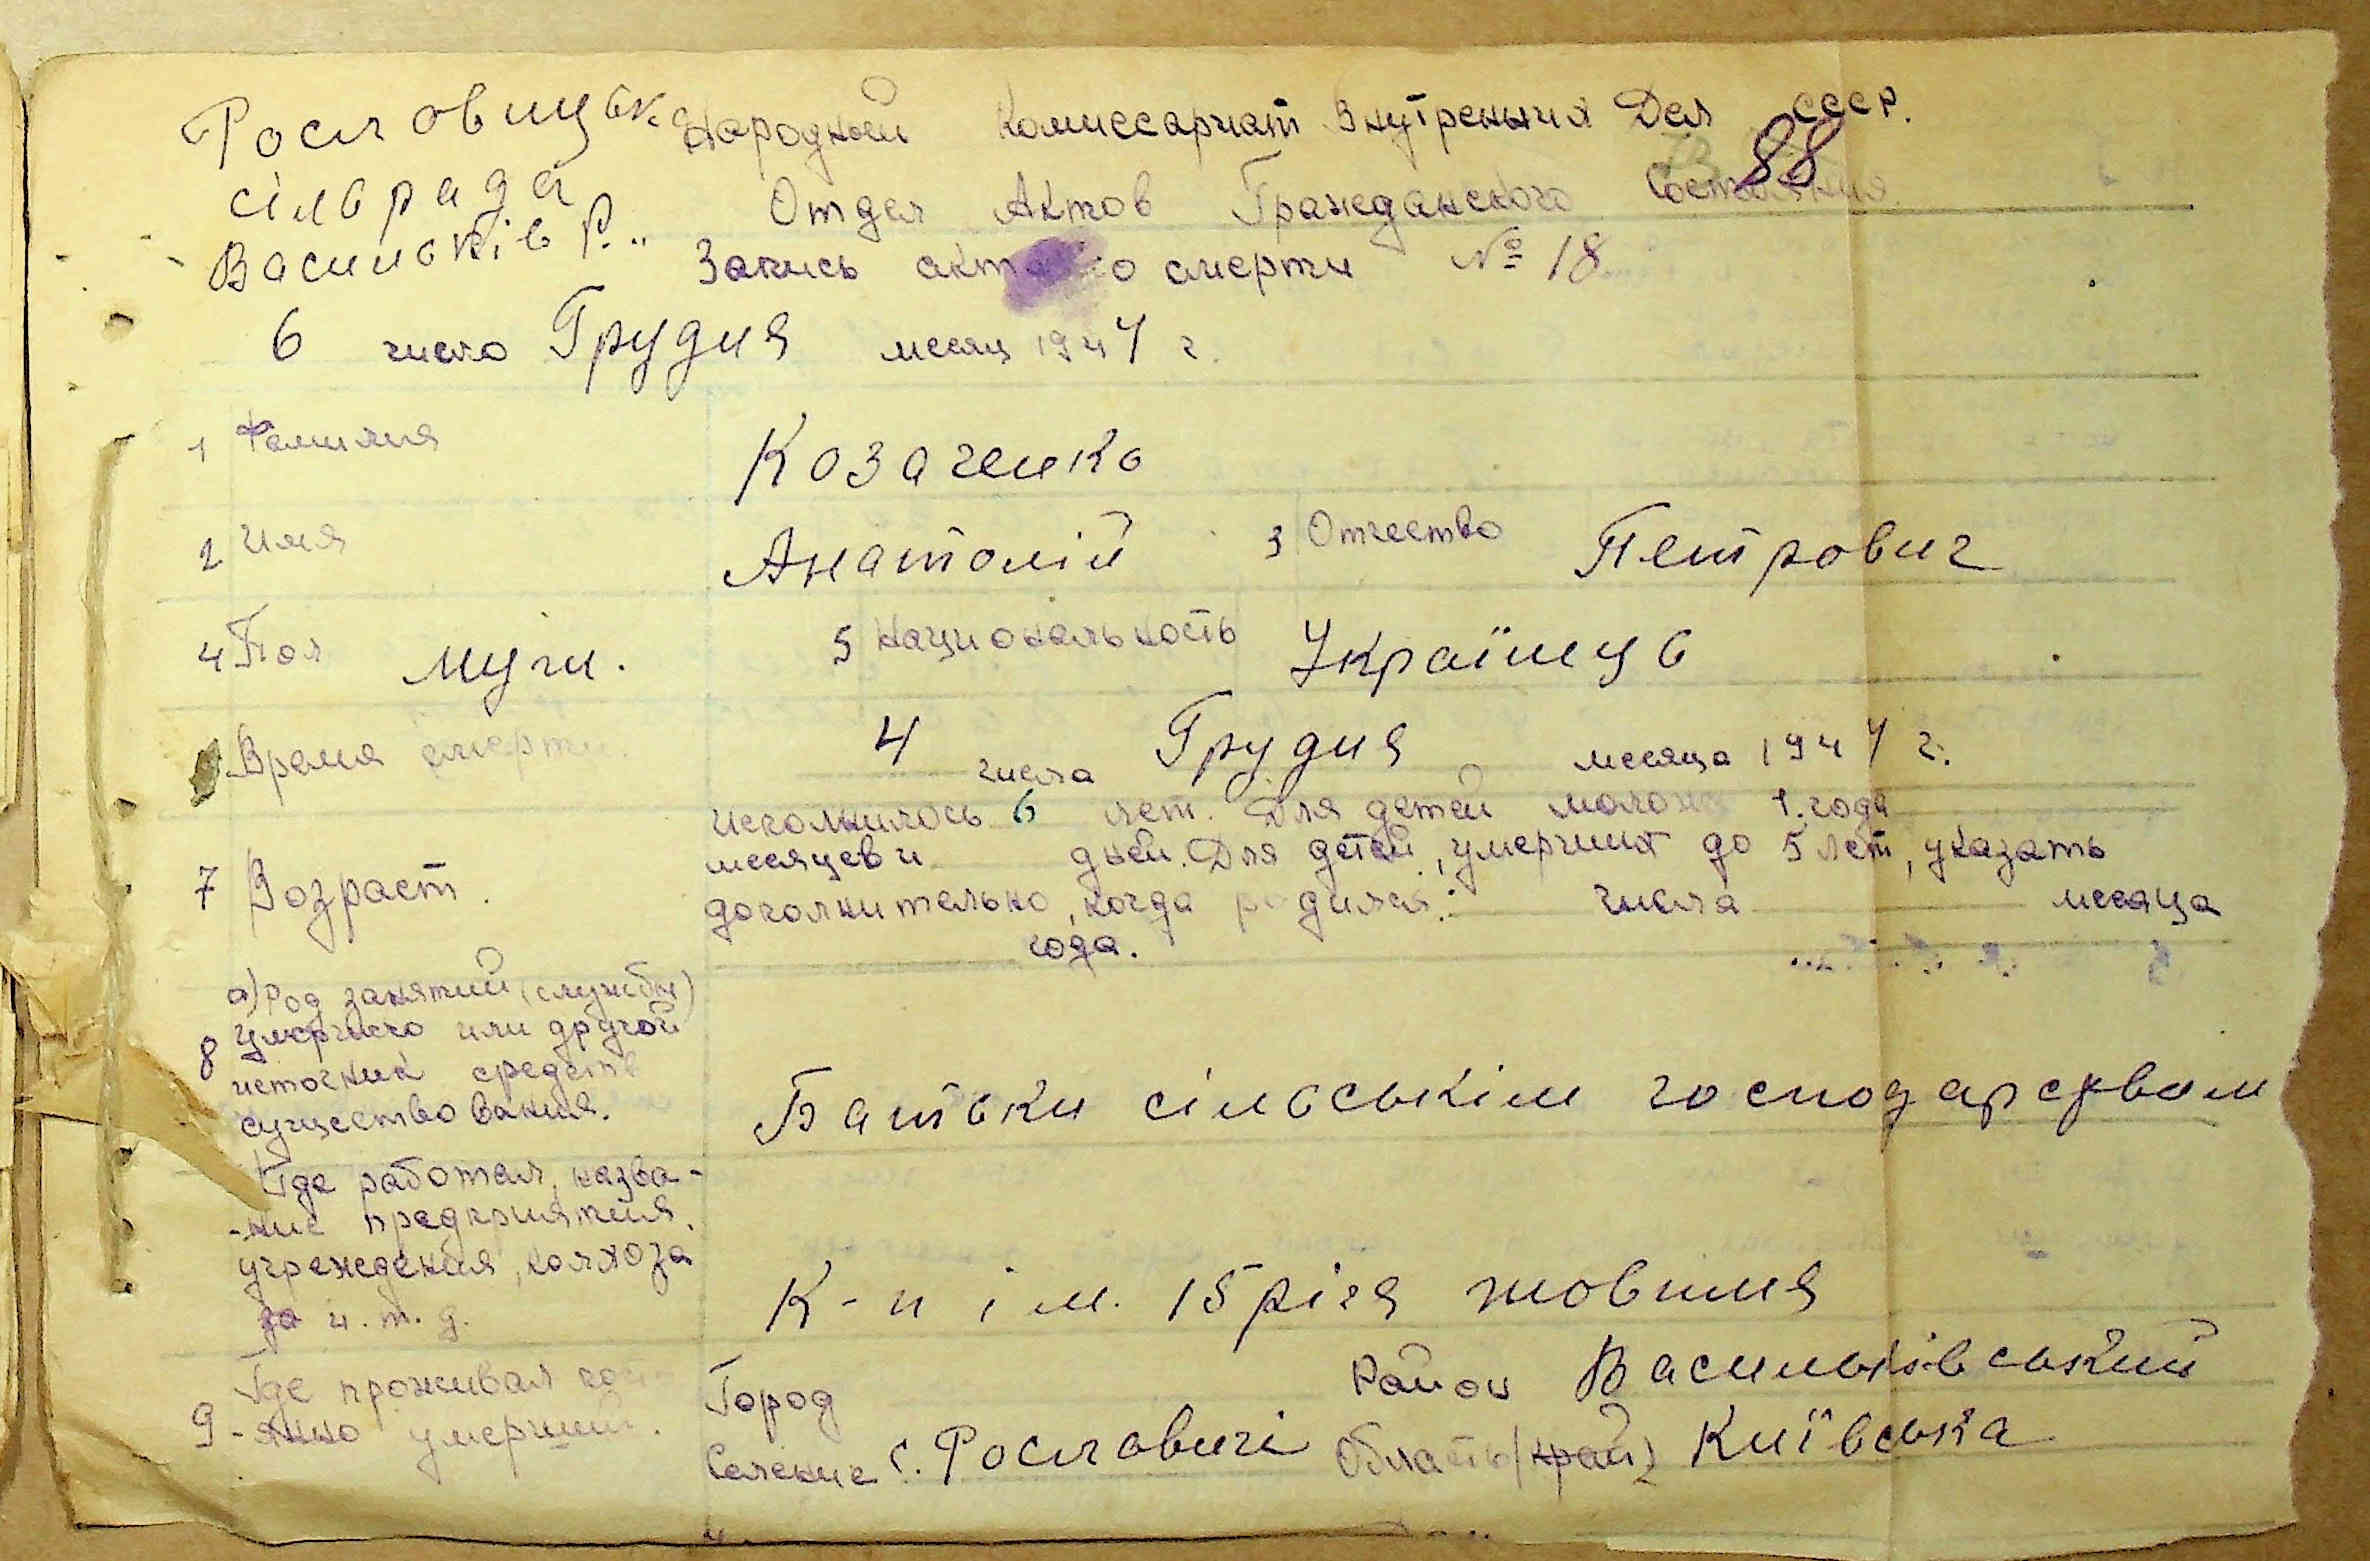 Рославицька Народный Комиссариат Внутренних Дел СССР.
88
сільрада Отдел Актов Гражданского Состояния
Васильків Р. Запись акта о смерти № 18
6 число Грудня месяц 1947 г.
1 Фамилия Козаченко
2 Имя Анатолій 3 Отчество Петрович
4 Пол муж. 5 Национальность Українець
Время смерти 4 числа Грудня месяца 1947 г.
исполнилось 6 лет. Для детей моложе 1 года
месяцев и дней. Для детей, умерших до 5 лет, указать
7 Возраст. дополнительно, когда родился: числа месяца
года.
а) Род занятий (службы)
умершего или другой
8 источник средств
существования. Батьки сільськім господарством
Где работал, назва-
-ние предприятия,
учреждения, колхоза
за и. т. д. К-п ім. 15 річя жовтня
Где проживал Город Район Васильківський
9 -янно умерший. Селение с. Рославичі Область (край) Київська